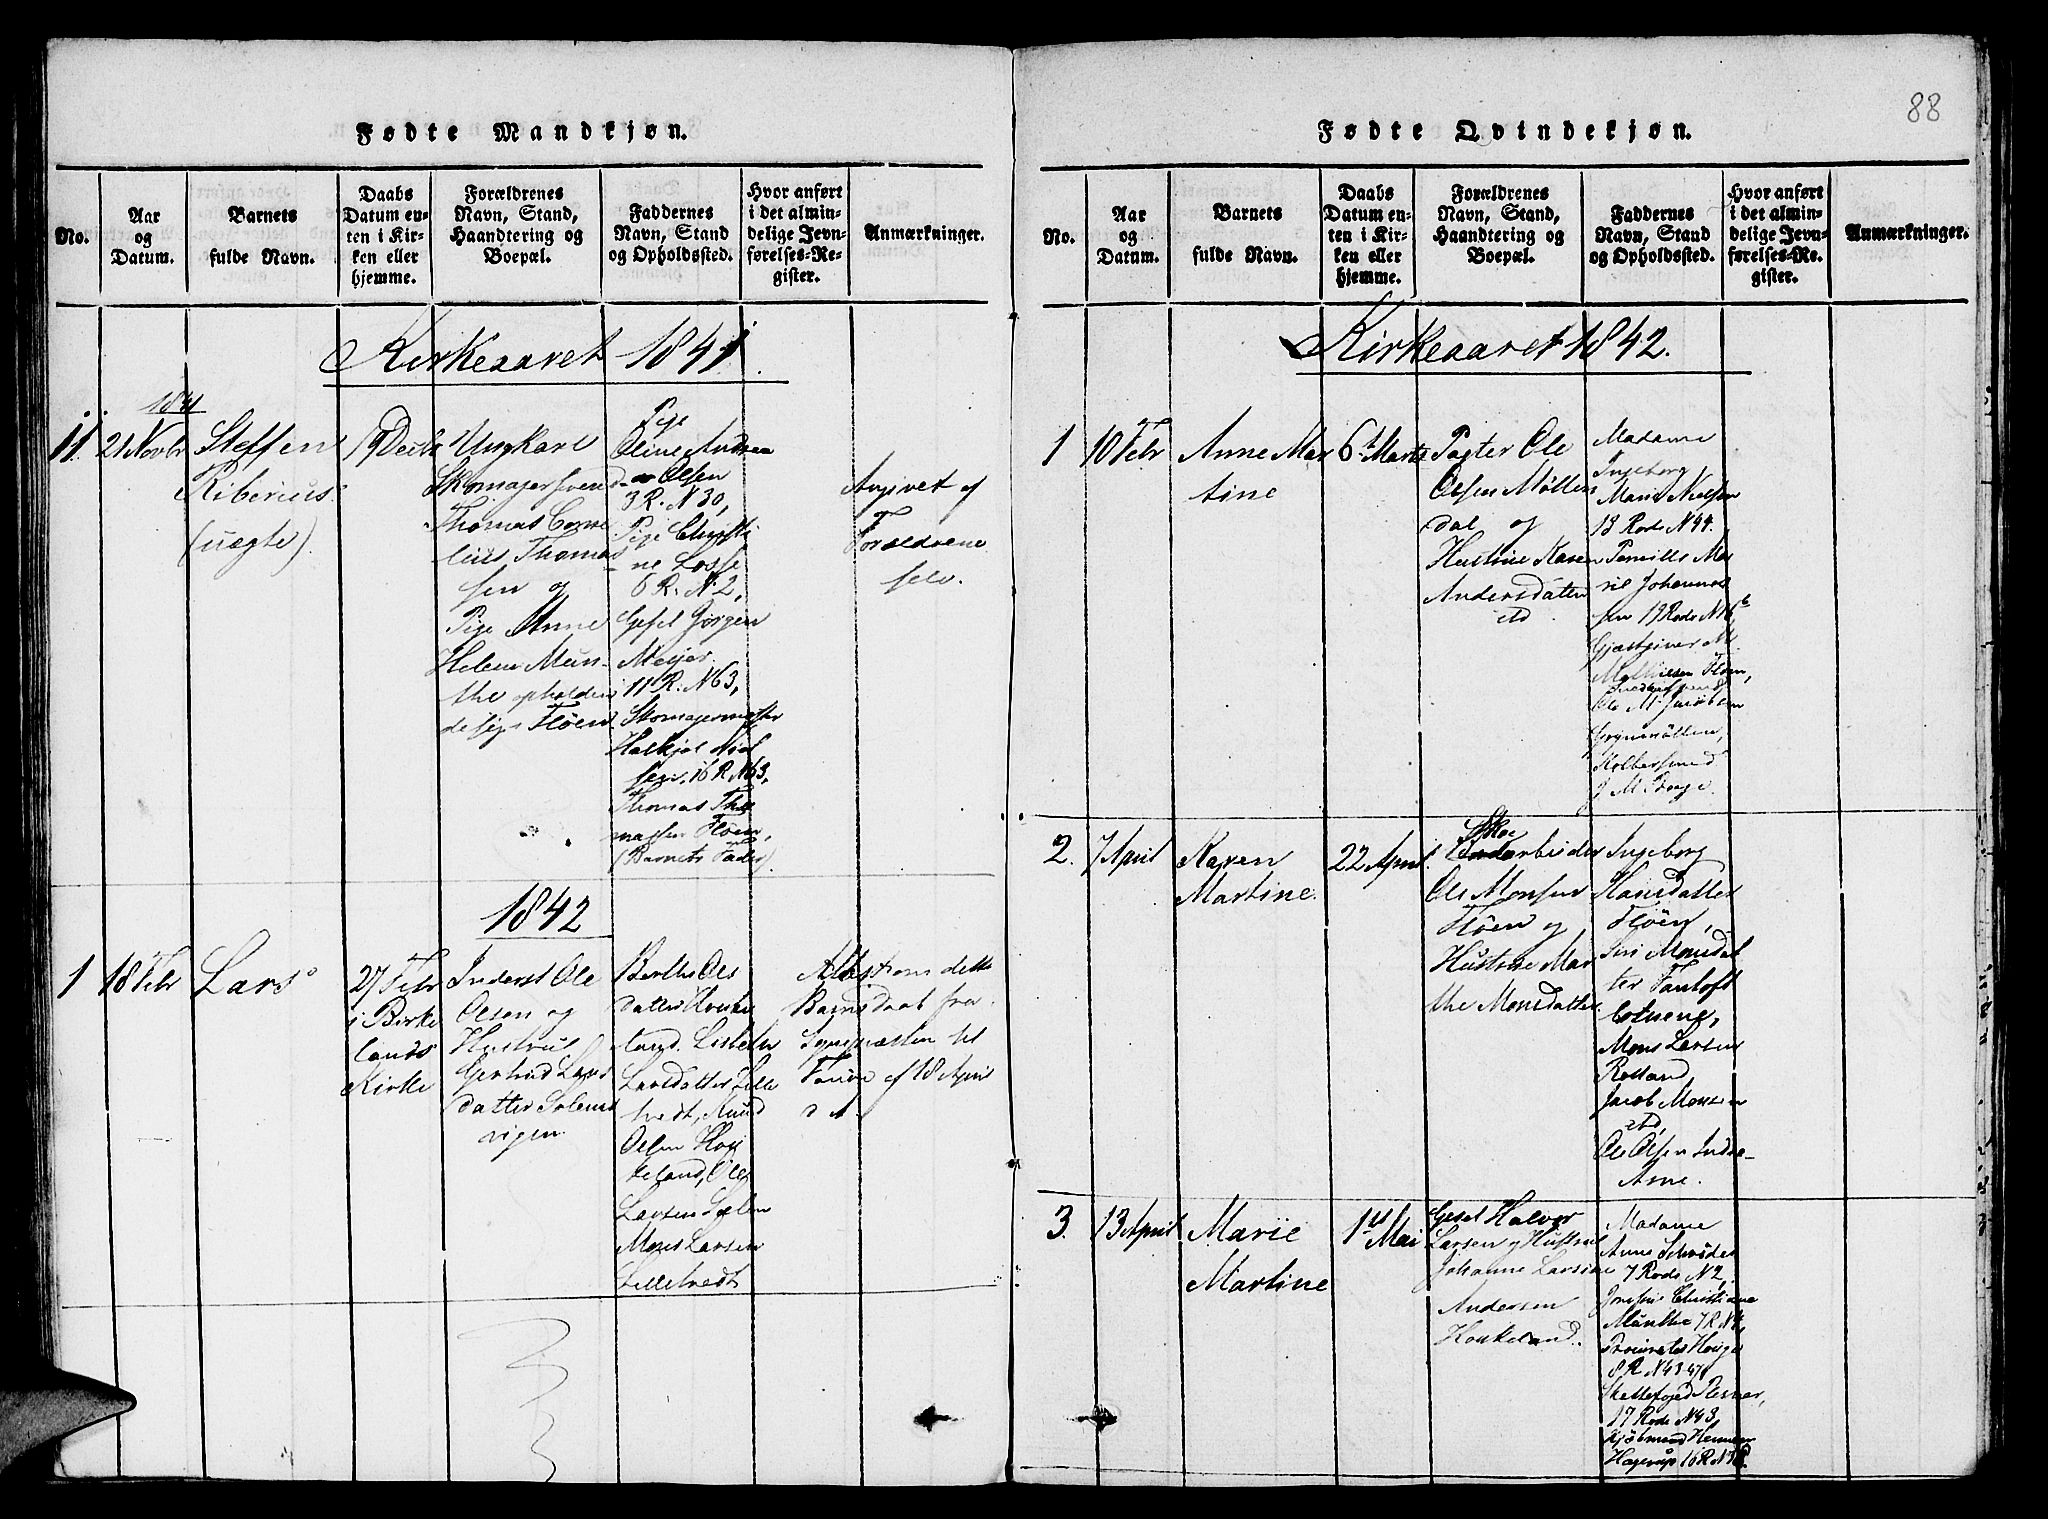 88
Fødte Mandkjøn.
No.
Aar
og
Datum.
Barnets
fulde Navn.
Daabs
Datum en-
ten i Kir-
ken eller
hjemme.
Forældrenes
Navn, Stand,
Haandtering og
Boepæl.
Faddernes
Navn, Stand
og Opholdssted.
Hvor anført
i det almin-
delige Jevn-
førelses-Re-
gister.
Anmærkninger.
Kirkeaaret 1841.
1841
11.
21 Novbr
Steffen
Riberius.
(uægte).
19 Decbr
Ungkarl
Skomagersvend
Thomas Corne
lius Thomas
sen og
Pige Anne
Helene Mun-
the opholden
de sig i Fløen
Pige
Oline Andrea
Olsen
3 R. N 30,
Pige Christi
ne Losse
6 R. N. 2,
Gesel Jørgen
Meyer
11 R. N 63,
Skomagermester
16 R. N 63,
Thomas Tho
massen Fløen,
(Barnets Fader).
Angivet af
Forældrene
selv.
1842
1
18 Febr
Lars
27 Febr
i Birke
lands
Kirke
Inderst Ole
Olsen og
Hustrue
Gertrud Lars
datter Solems
vigen
Berthe Ols
datter
land, Lisbeth
Larsdatter Lille
tvedt, Knud
Olsen Hop
Ole
Larsen
Mons Larsen
Lilletvedt
dette
Barns daab fra
Sognepræsten til
Fane af 18 April
d. A.
Fødte Qvindekjøn.
No.
Aar
og
Datum.
Barnets
fulde Navn.
Daabs
Datum en-
ten i Kir-
ken eller
hjemme.
Forældrenes
Navn, Stand,
Haandtering og
Boepæl.
Faddernes
Navn, Stand
og Opholdssted.
Hvor anført
i det almin-
delige Jevn-
førelses-Re-
gister.
Anmærkninger.
Kirkeaaret 1842.
1
10 Febr
Anne Mar
tine
6te Marts
Pagter Ole
Olsen Møllen
dal og
Hustrue Karen
Andersdatter
ibd.
Madame
Ingeborg
Marie Nielsen
13 Rode N 44.
Pernille Ma
rie Johannes
sen 19 Rode N 16 b
Gjæstgiver M.
Mathiesen Fløen,
Ole M. Jacobsen
Grynemøllen,
2.
7 April
Karen
Martine.
22 April
Skoe
arbeider
Ole Monsen
Fløen og
Hustrue Mar
the Monsdatter
Ingeborg
Hansdatter
Fløen,
Siri Monsdat
ter Fantoft
Mons Larsen
Jacob Monsen
ibd,
Ole Olsen Indre-
Arne.
3.
13 April
Marie
Martine
1ste Mai
Gesel Halvor
Larsen og Hustrue
Johanne Larsine
Andersen
Houkeland.
Madame
Anne Schrøder
7 Rode N 2,
Christiane
Munthe 7 R N 4,
8 R N 43
17 Rode N 43,
Kjøbmand Herman
Hagerup 16 R N